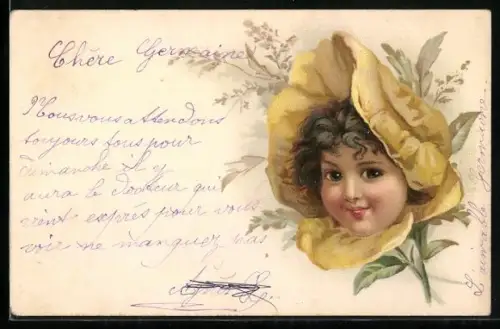 Chère Germaine
Nous vous attendons
toujours tous pour
dimanche il y
aura le docteur qui
vient exprés pour vous
voir ne manquez pas
Germaine